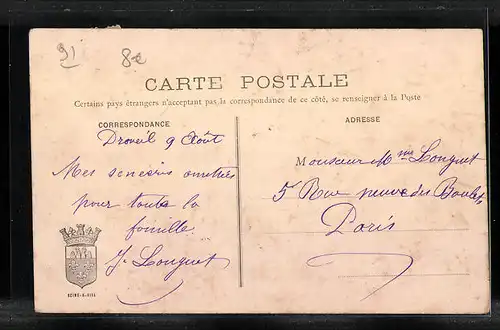 91 8e
CARTE POSTALE
Certains pays étrangers n'acceptant pas la correspondance de ce côté, se renseigner à la Poste
CORRESPONDANCE
ADRESSE
Draveil 9 Août
Mes sincères amitiés
pour toute la
famille.
J. Longuet
Monsieur Mme Longuet
5 Rue neuve des Boulets
Paris